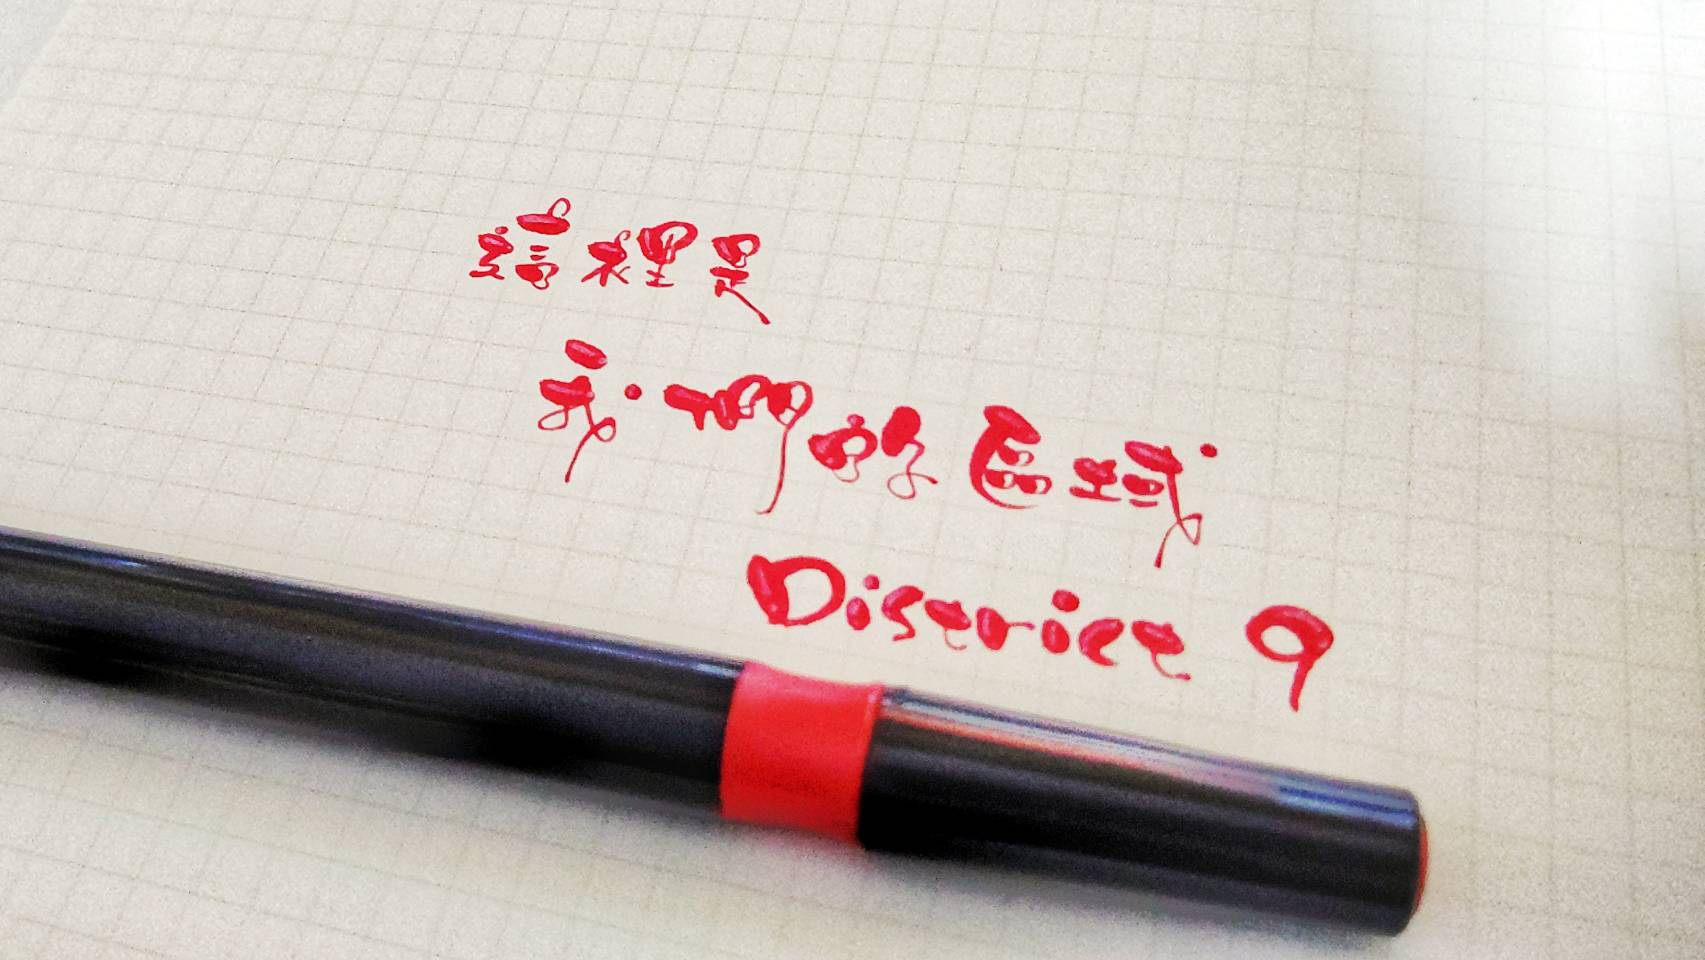 這裡是
我們的區域
District 9